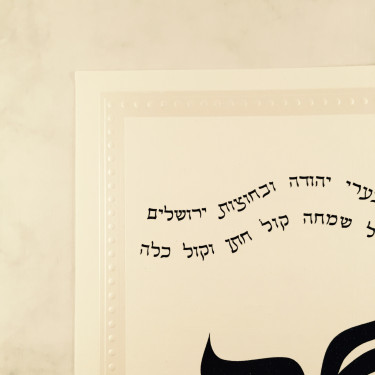 בערי יהודה ובחוצות ירושלים
שמחה קול חתן וקול כלה